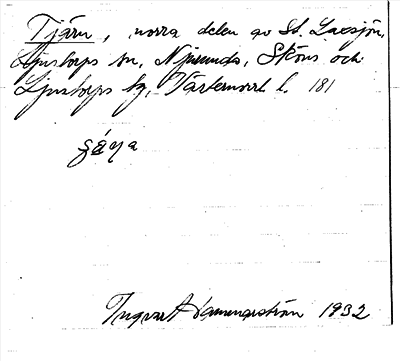 Tjärn, norra delen av St. Laxsjön,
Ljustorps sn, Njurunda, Sköns och
Ljustorps tg, Västernorrl l. 181
Ingvar 1932